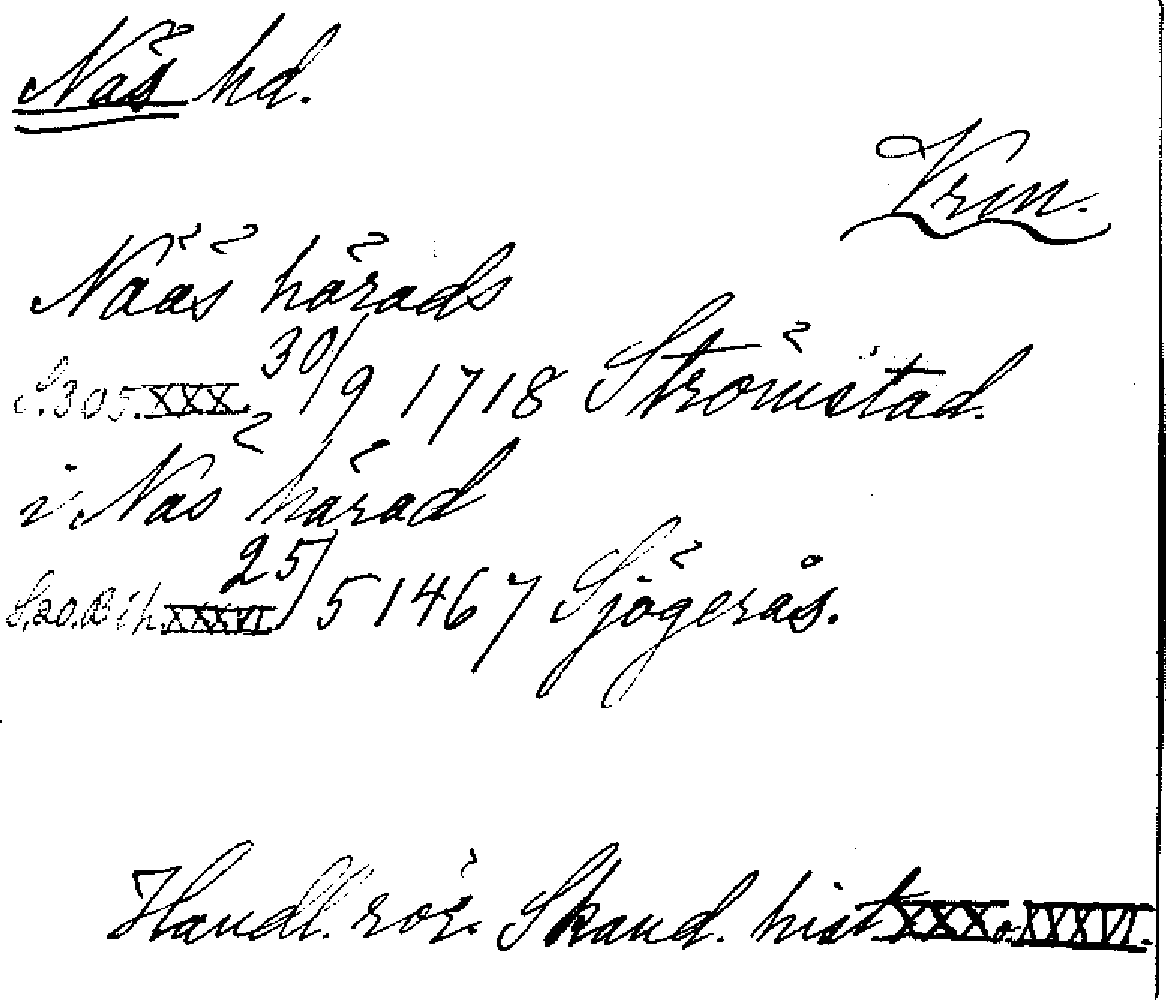 Näs hd.
Vrm.
Nääs härads
S. 305. XXX. 30/9 1718 Strömstad.
i Näs härad
S. 20. Bih. XXXVI. 25/5 1467 Sjögerås.
Handl. rör. Skand. hist XXX o. XXXVI.